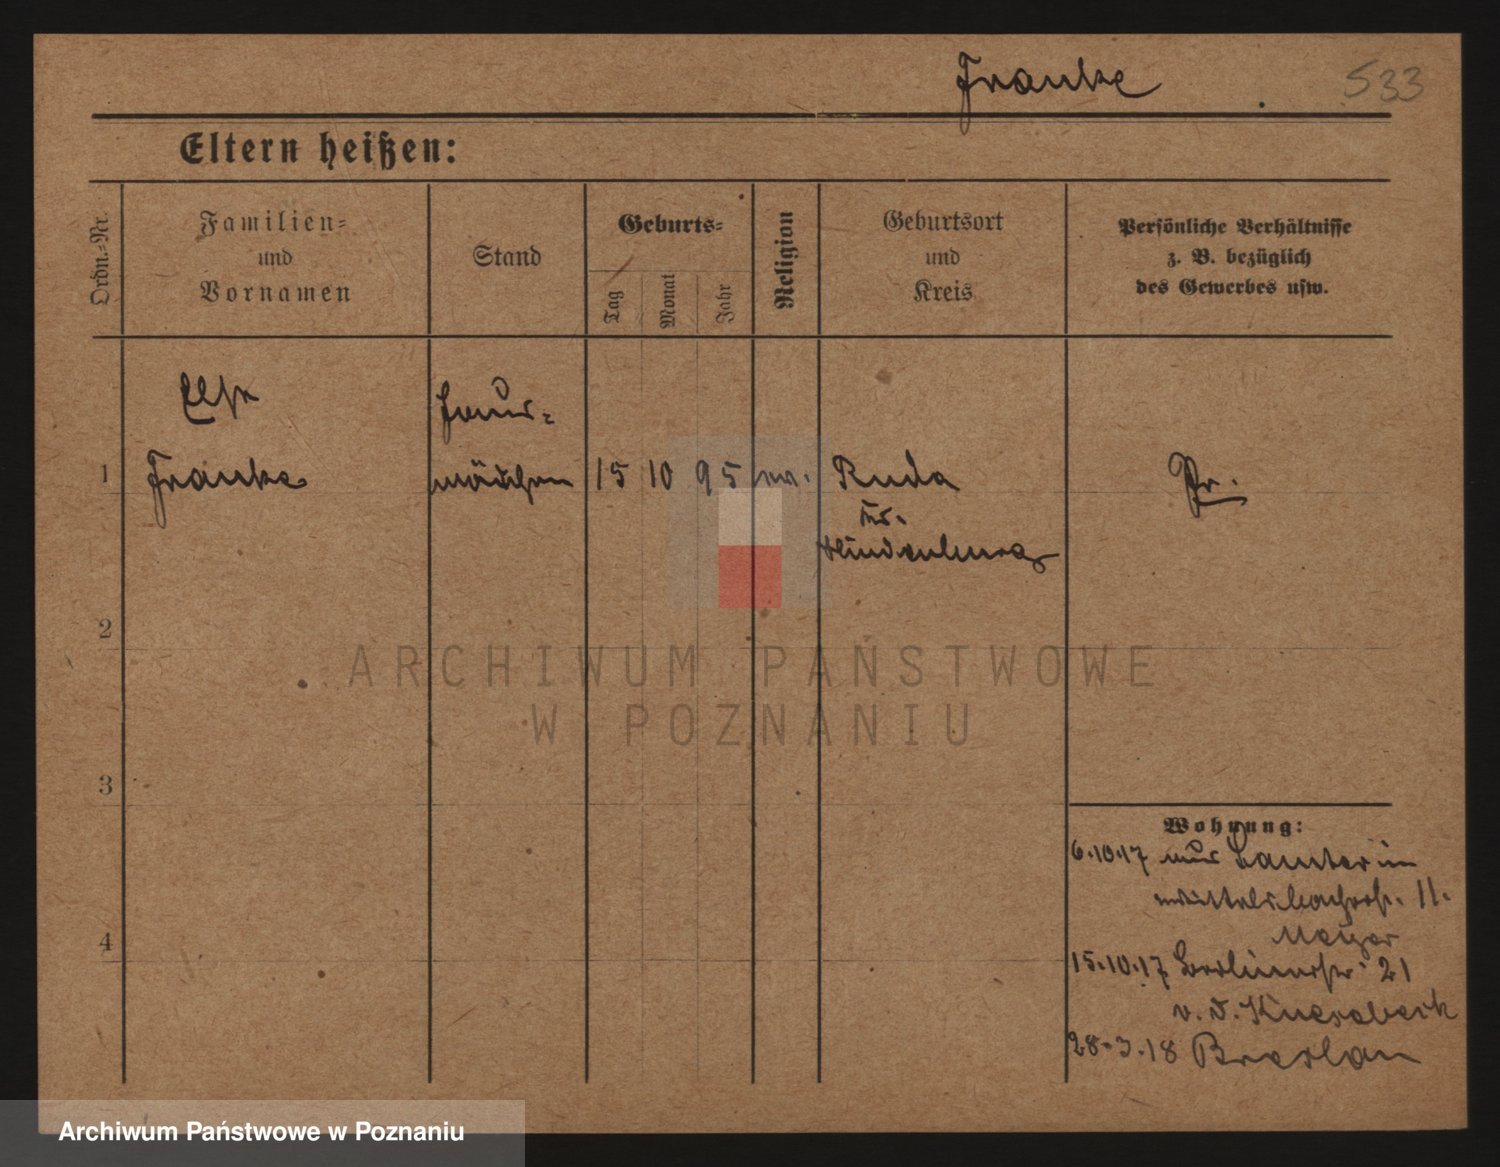 Franke 533
Eltern heißen:
Ordn.-Nr.
Familien-
und
Vornamen
Stand
Geburts-
Tag
Monat
Jahr
Religion
Geburtsort
und
Kreis
Persönliche Verhältnisse
z. B. bezüglich
des Gewerbes usw.
Else
Haus-
1 Franke mädchen 15 10 95 ev. Ruda Pr.
Kr.
Hindenburg
2
3
4
Wohnung:
6.10.17 aus
11.
Meyer
15.10.17 Berlinerstr. 21
v. d. Knesebeck
28.3.18 Breslau
ARCHIWUM PAŃSTWOWE
W POZNANIU
Archiwum Państwowe w Poznaniu